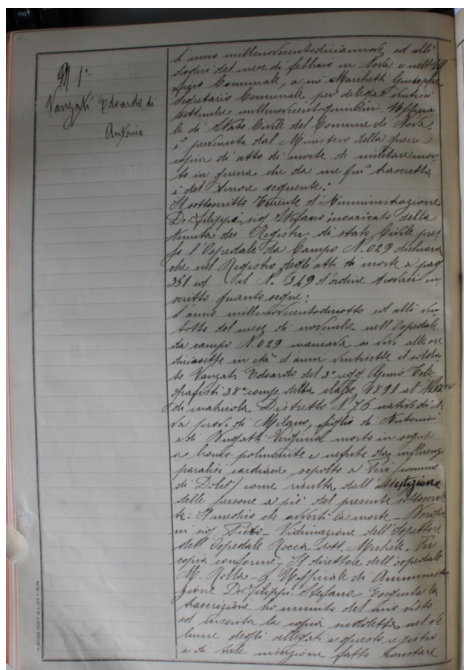 N 1°
Vanzati Edoardo di
Antonio
L'anno millenovecentodiciannove ed alli
dodici del mese di febbraio in Nova e nell'Uf
ficio Comunale, a me Giuseppe
Segretario Comunale per delega
millenovecentoquindici Uffizia
le di Stato Civile del Comune di Nova
è pervenuta dal Ministero della Guerra
copia di atto di morte di militare mor
to in guerra che da me fu trascritta
è del tenore seguente:
Il sottoscritto Tenente d'Amministrazione
De Filippi sig. Stefano incaricato della
tenuta dei Registri di stato Civile pres
so l'Ospedale da Campo N. 029 dichiara
che nel Registro degli atti di morte a pag
261 ed al N. 249 d'ordine trovasi in
scritto quanto segue:
L'anno millenovecentodiciotto ed alli ven
totto del mese di novembre nell'Ospedale
da campo N. 029 mancava ai vivi alle ore
diciasette in età d'anni ventisette il solda
to Vanzati Edoardo del 3° regg Genio Tele
grafisti 38° comp. della classe 1891 al
di matricola Distretto N. 76 nativo di No
va prov. di Milano, figlio di Antonio
e di Virginia morto in seguito
a bronco polmonite e nefrite da influenza
paralisi cardiaca sepolto a
come risulta dall'attestazione
delle persone a piè del presente sottoscrit
te: Il medico che avvertì la morte
sig. Pietro Vidimazione dell'Ispettore
dell'Ospedale Rocca dott. Michele. Per
copia conforme. Il direttore dell'ospedale
M. Rolla. L'Ufficiale di Amministra
zione De Filippi Stefano. Eseguita la
trascrizione ho munito del mio visto
ed inserita la copia suddetta nel vo
lume degli allegati a questo registro
e di tale iscrizione fatto constare